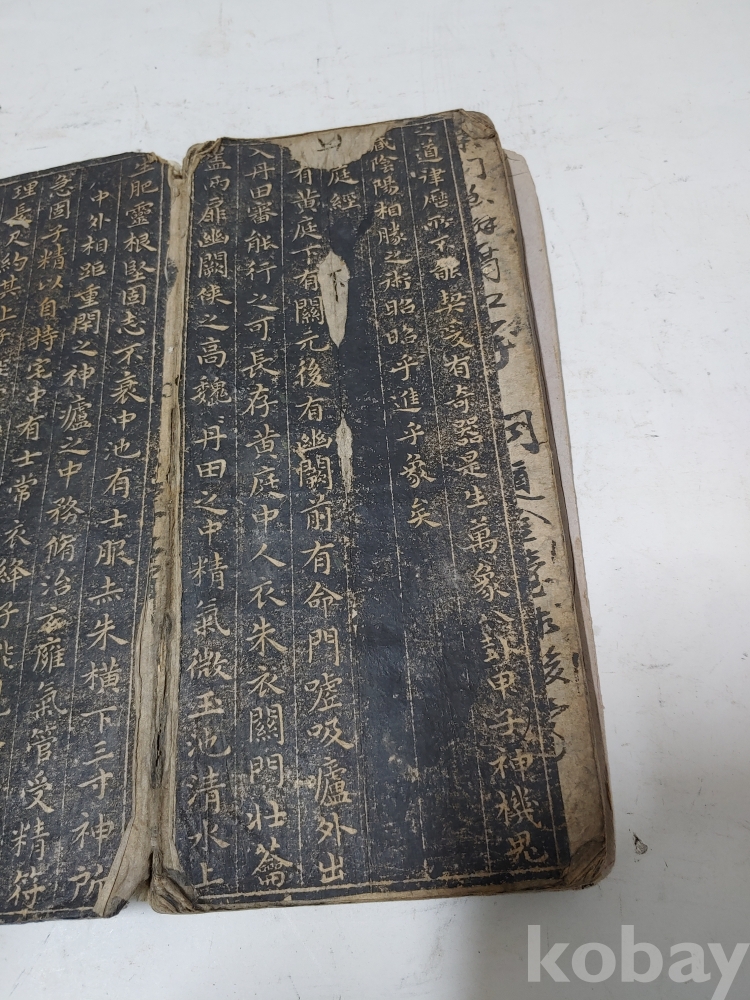 之道律曆所不能契爰有奇器是生萬象八卦甲子神機鬼
藏陰陽相勝之術昭昭乎進乎象矣
庭經
有黃庭下有關元後有幽闕前有命門噓吸廬外出
入丹田審能行之可長存黃庭中人衣朱衣關門壯籥
蓋兩扉幽闕俠之高巍丹田之中精氣微玉池清水上
生肥靈根堅固志不衰中池有士服赤朱橫下三寸神所
中外相距重閉之神廬之中務脩治玄廱氣管受精符
急固子精以自持宅中有士常衣絳子能見
理長尺約其上子
kobay